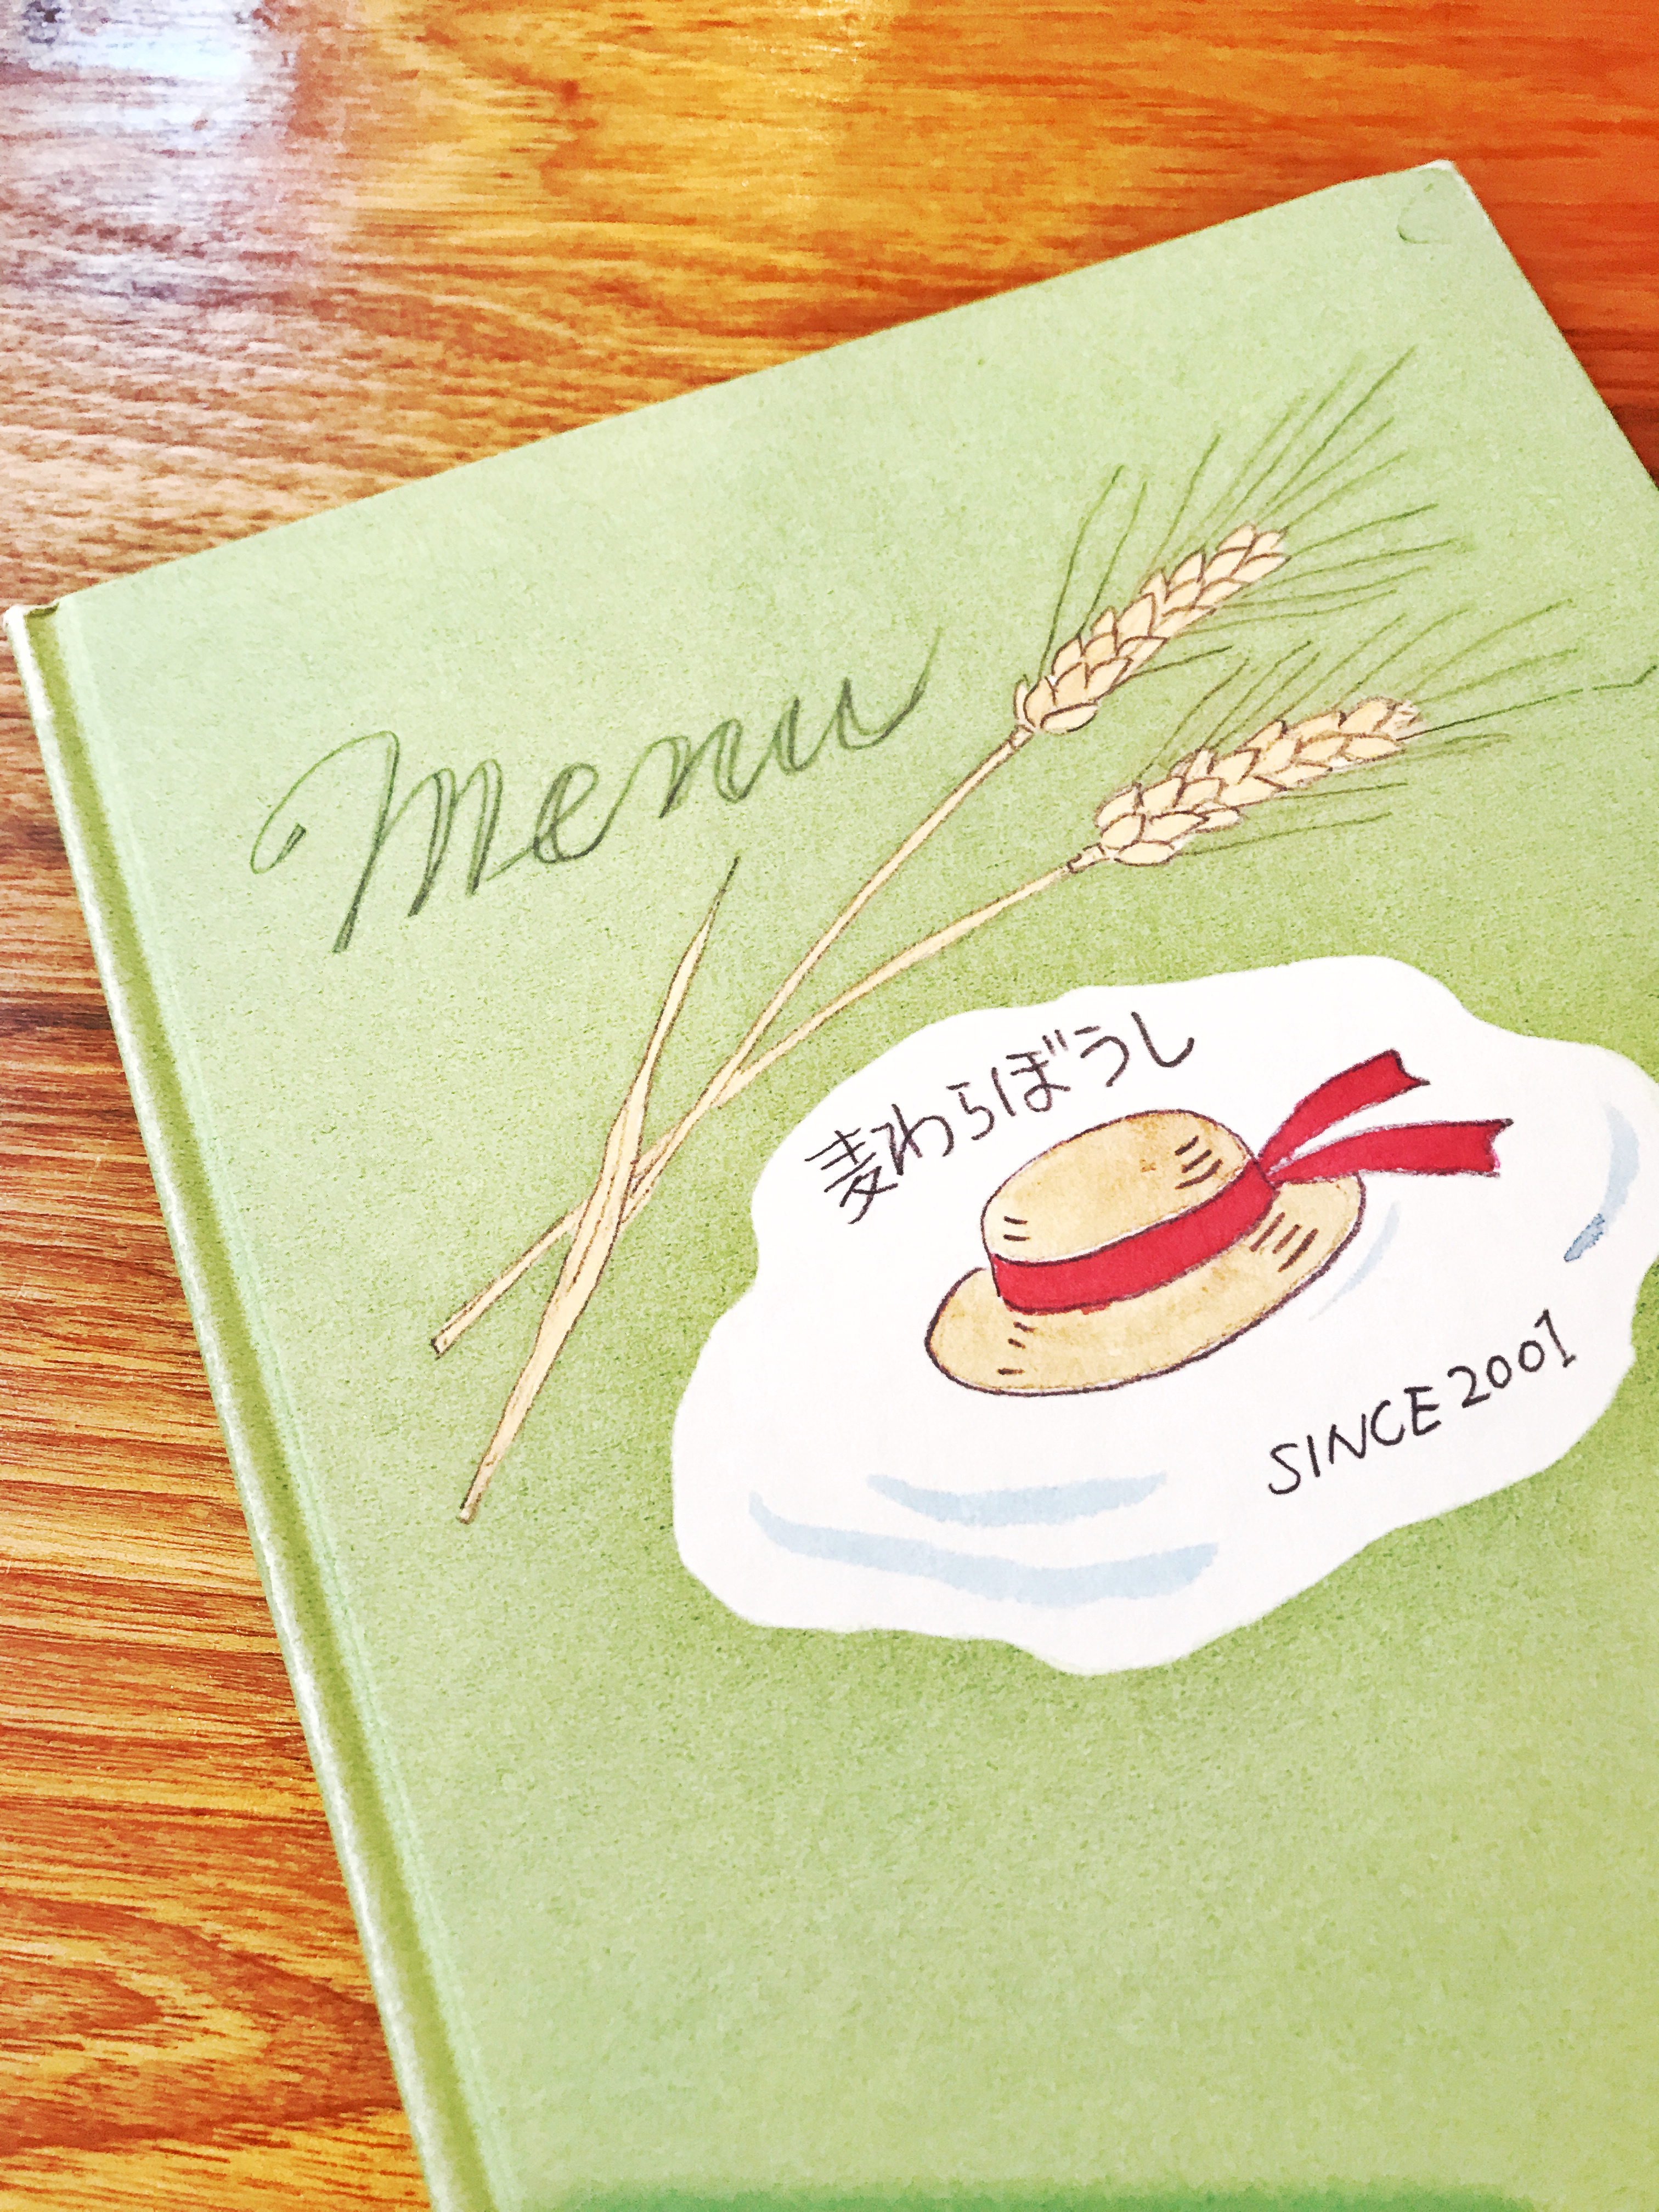 Menu
麦わらぼうし
SINCE 2001